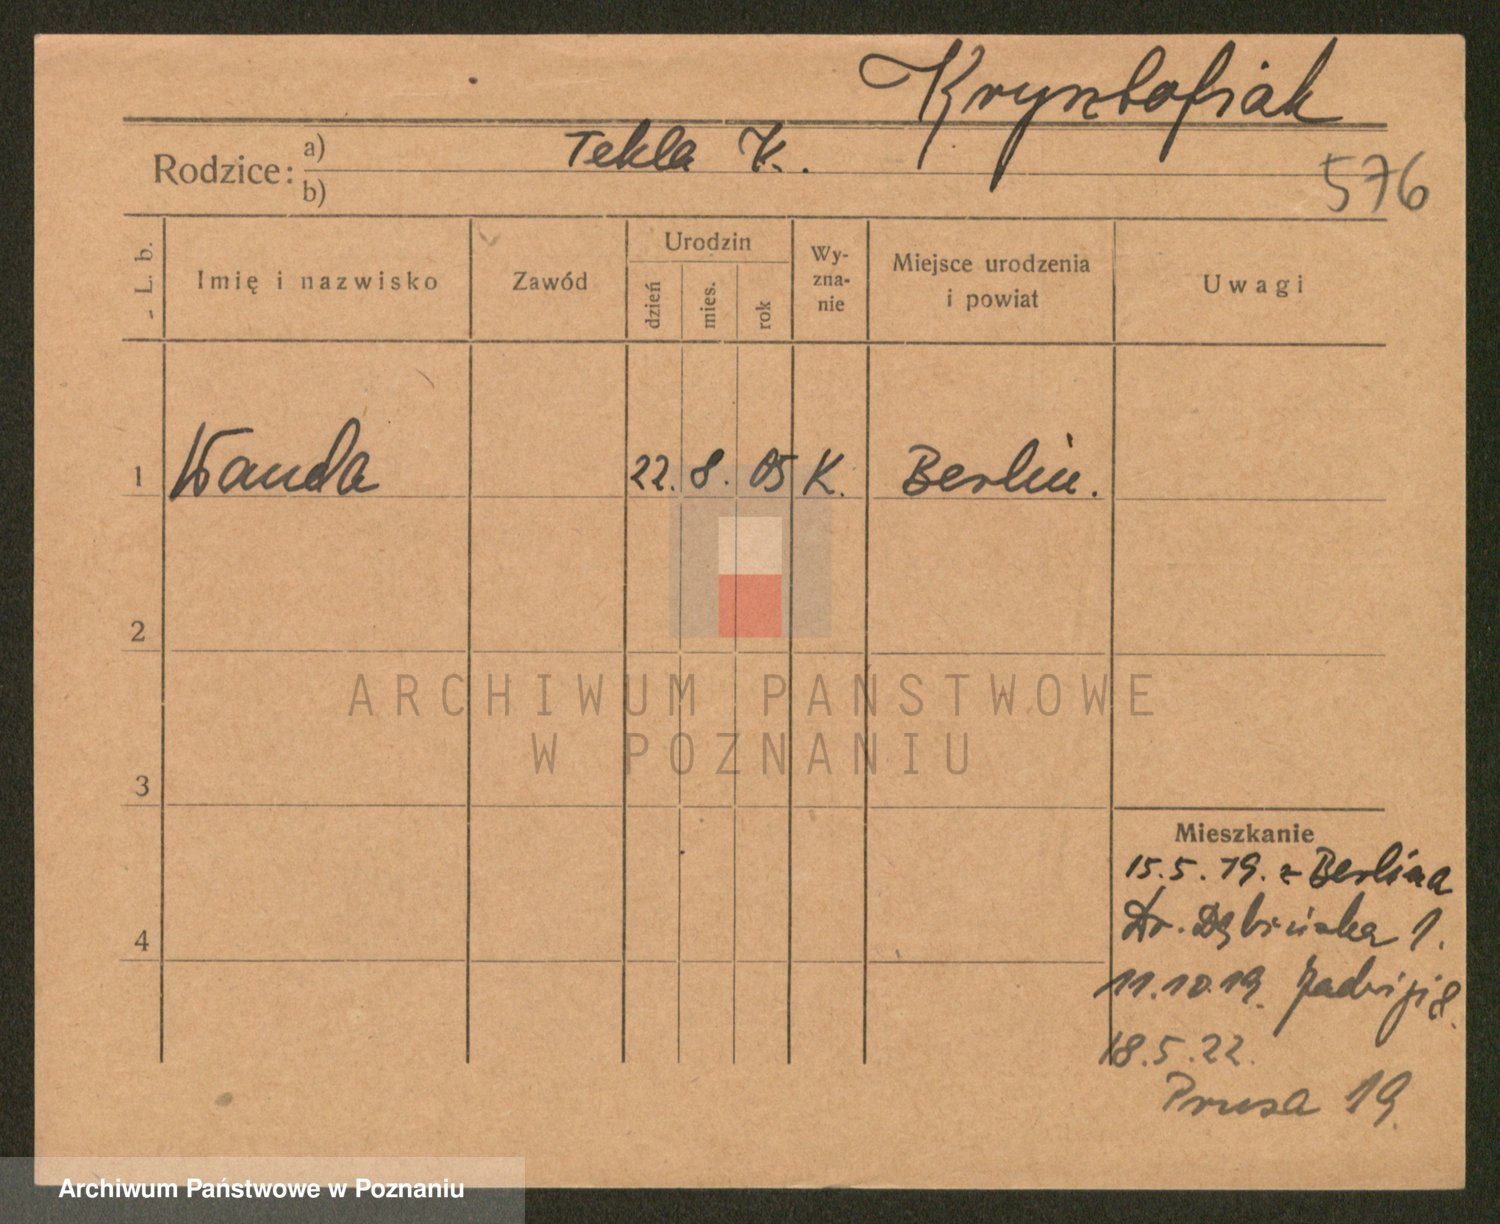 Krysztofiak
Rodzice: a) Tekla K.
b)
576
L. b.
Imię i nazwisko
Zawód
Urodzin
dzień
mies.
rok
Wy-
zna-
nie
Miejsce urodzenia
i powiat
Uwagi
1 Wanda 22. 8. 05 K. Berlin.
2
3
4
Mieszkanie
15.5.19. z Berlina
Dr. Dębińska 1.
11.10.19. Jadwigi 8.
18.5.22.
Prusa 19.
ARCHIWUM PAŃSTWOWE
W POZNANIU
Archiwum Państwowe w Poznaniu